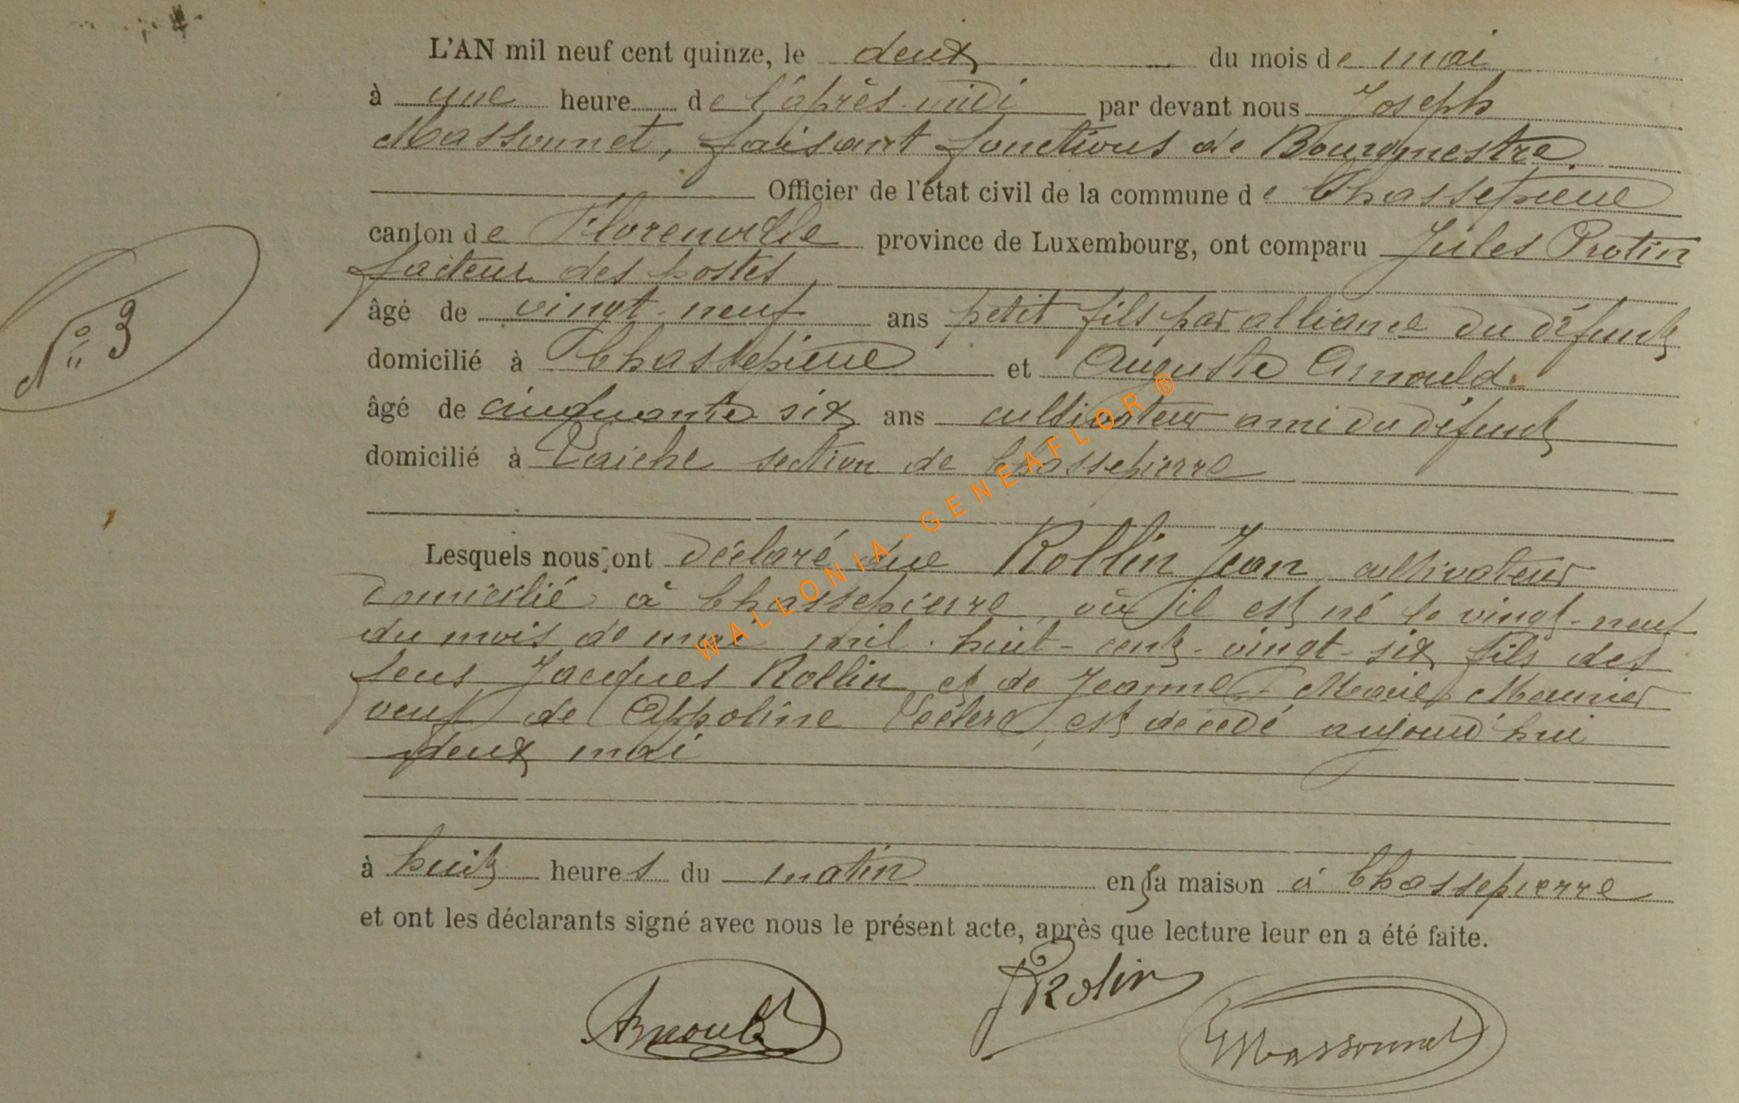 L'AN mil neuf cent quinze, le deux du mois de mai
à une heure de l'après-midi par devant nous Joseph
Massonnet, faisant fonctions de Bourgmestre.
Officier de l'état civil de la commune de Chassepierre
canton de Florenville province de Luxembourg, ont comparu Jules Protin
facteur des postes,
N° 3
âgé de vingt-neuf ans petit fils par alliance du défunt
domicilié à Chassepierre et Auguste Arnould.
âgé de cinquante six ans cultivateur ami du défunt
domicilié à Laiche section de Chassepierre
Lesquels nous ont déclaré que Rollin Jean, cultivateur
domicilié à Chassepierre, où il est né le vingt-neuf
du mois de mai mil-huit-cent-vingt-six fils des
feus Jacques Rollin et de Jeanne-Marie Meunier
veuf de Appoline Leclerc, est decedé aujourd'hui
deux mai
à huit heures du matin en sa maison à Chassepierre
et ont les déclarants signé avec nous le présent acte, après que lecture leur en a été faite.
Arnould JProtin JMassonnet
WALLONIA-GENEAFLOR®